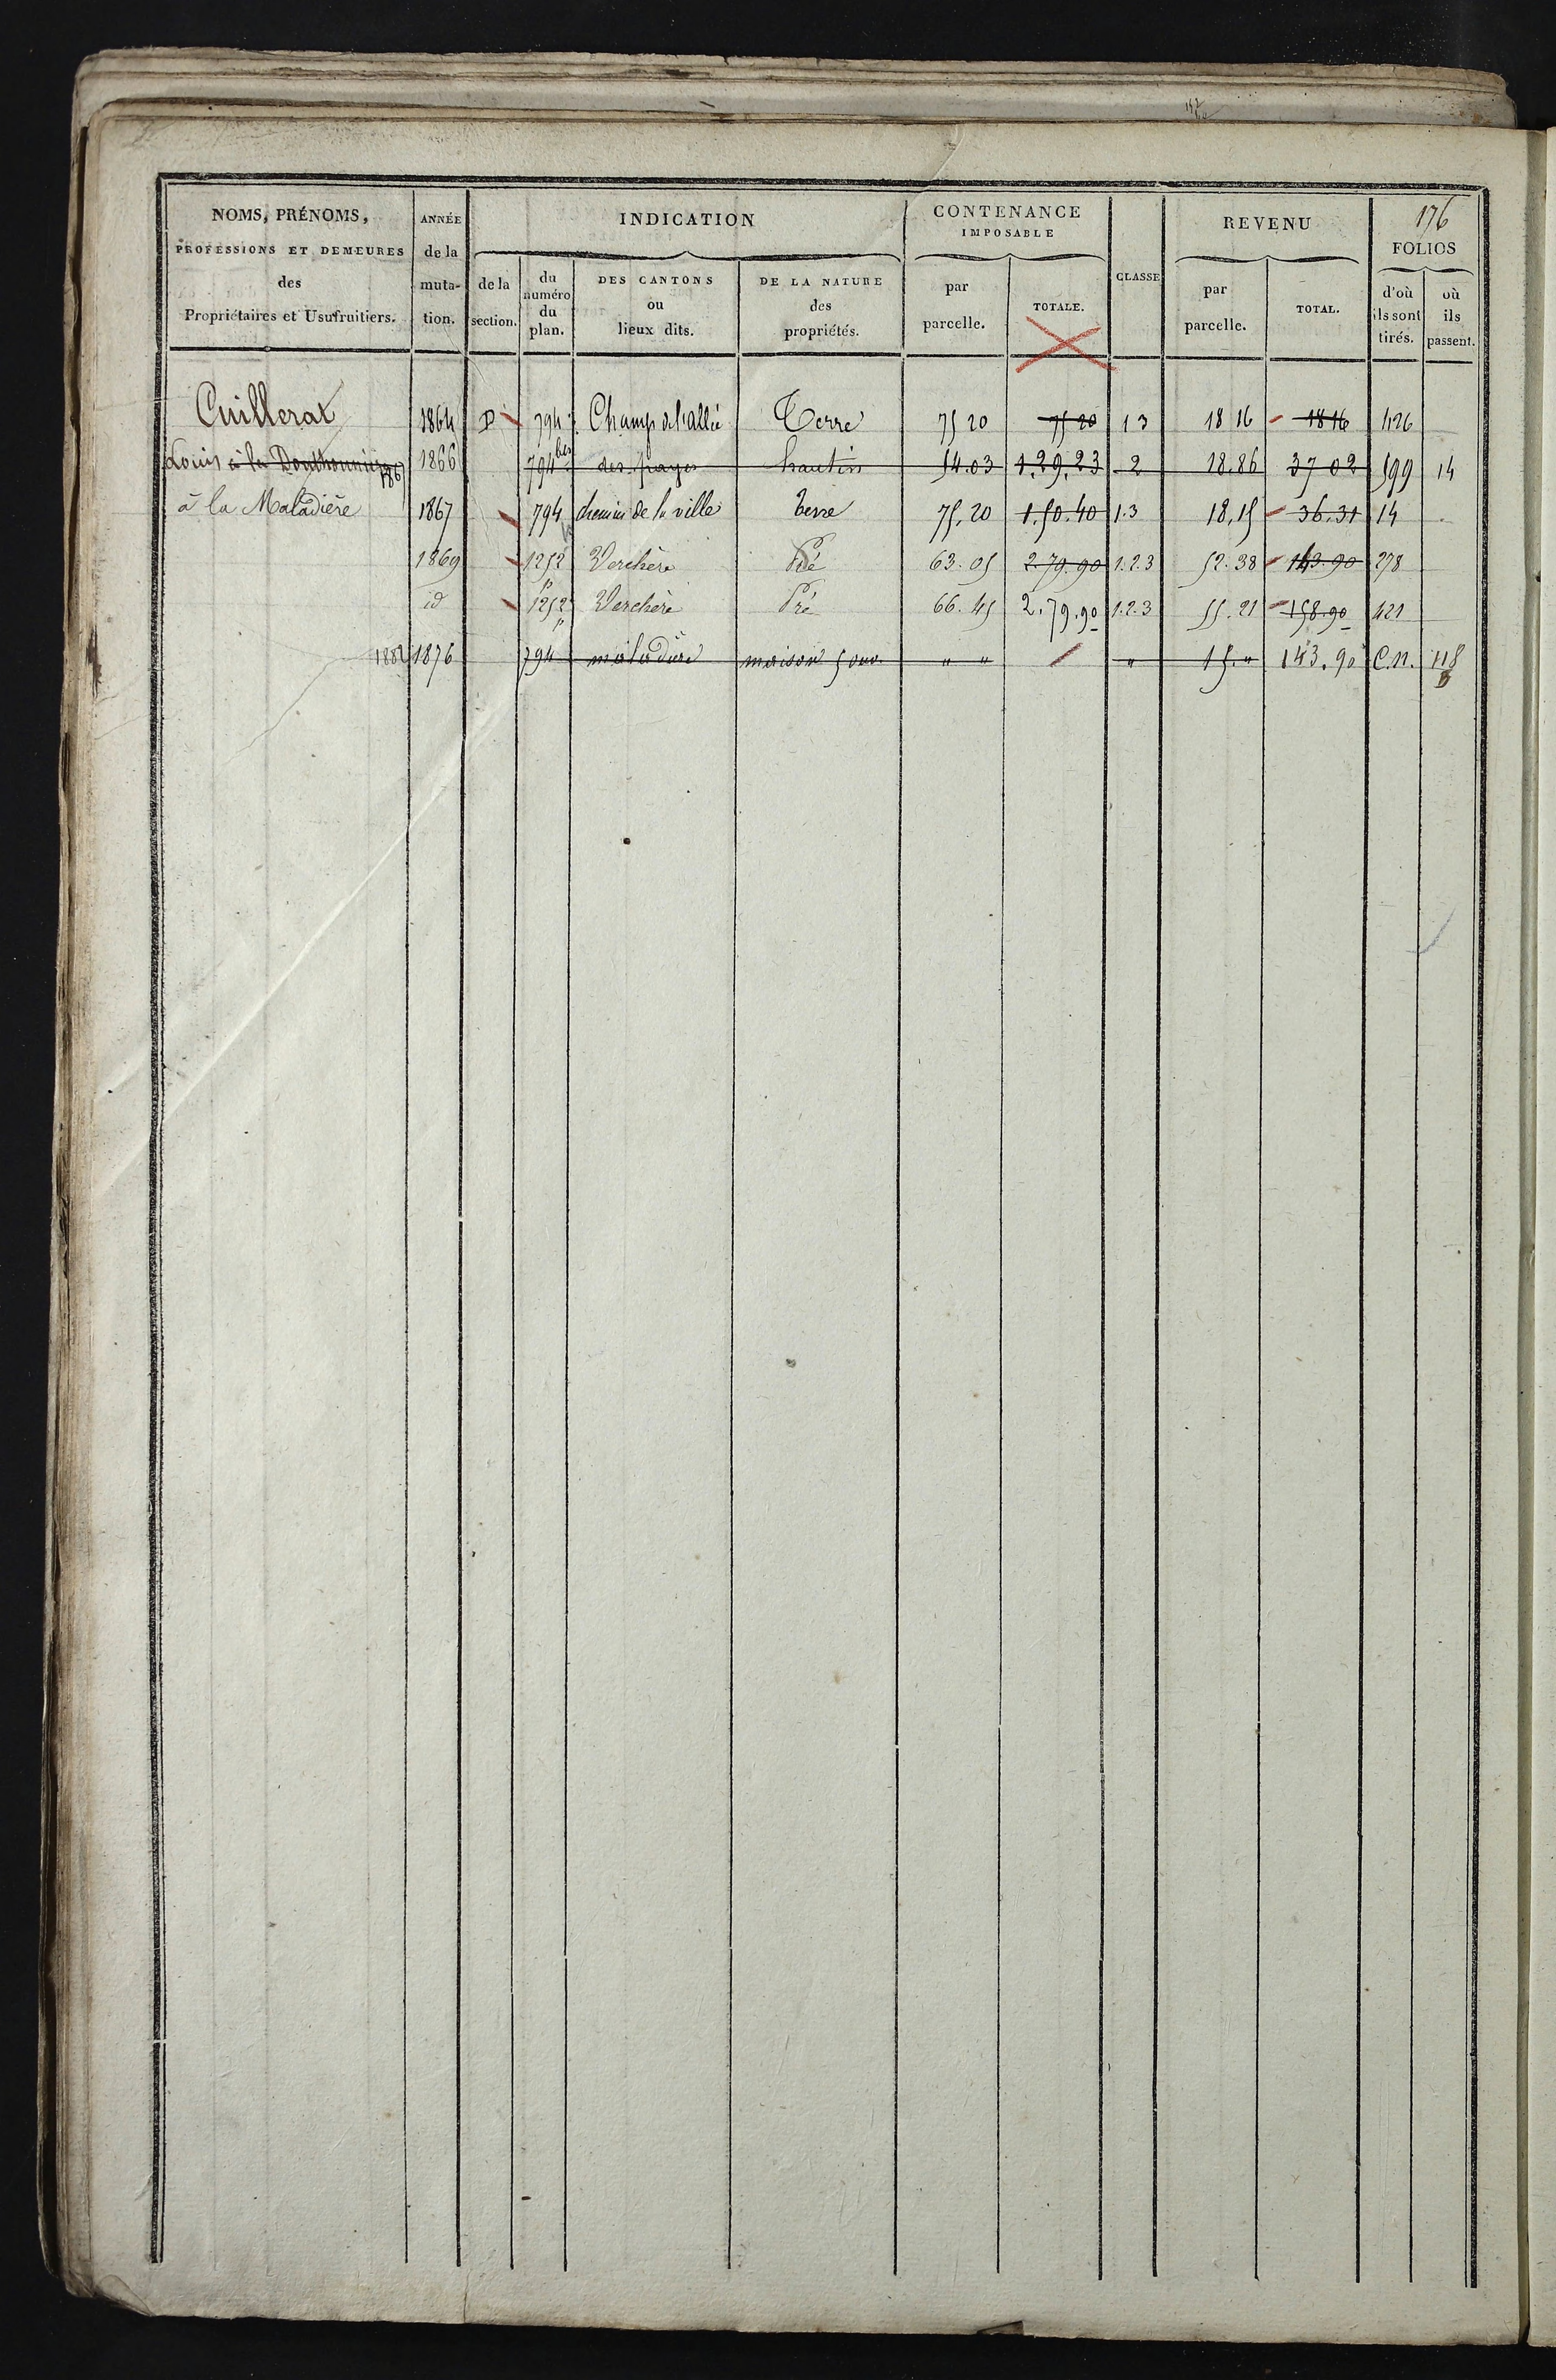 176
NOMS, PRÉNOMS, PROFESSIONS ET DEMEURES des Propriétaires et Usufruitiers.
ANNÉE de la muta-tion.
INDICATION
de la section.
du numéro du plan.
DES CANTONS ou lieux dits.
DE LA NATURE des propriétés.
CONTENANCE IMPOSABLE
par parcelle.
TOTALE.
CLASSE
REVENU
par parcelle.
TOTAL.
FOLIOS
d'où ils sont tirés.
où ils passent.
Cuillerat 1864 D 794 Champ de l'allée Terre 75 20 75 20 1 3 18 16 18 16 426
Louis à la 1867 1866 794 bis hautin 54.03 1.29.23 2 18.86 37 02 599 14
à la Maladière 1867 794 chemin de la ville terre 75.20 1.50.40 1.3 18.15 36.31 14
1869 1252 p Verchère Pré 63.05 2.79.90 1.2.3 52.38 143.90 278
id 1252 p Verchère Pré 66.45 2.79.90 1.2.3 55.21 158.90 421
1882 1876 794 maladière maison 5 ouv. " " " 15." 143.90 C.n. 118